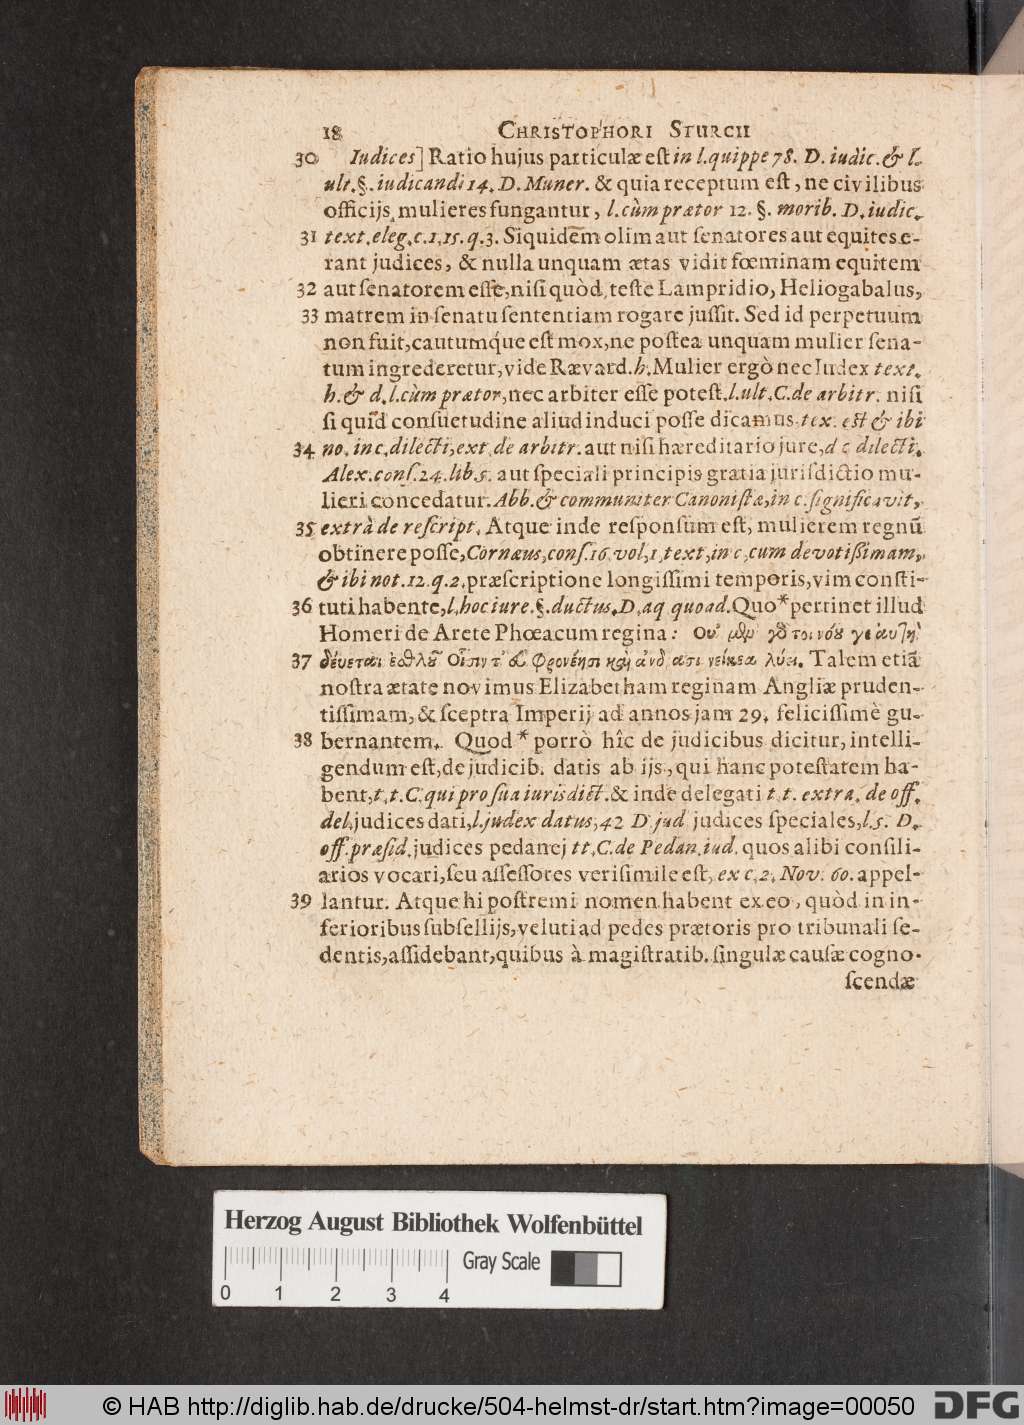 18 CHRISTOPHORI STURCII
30 Iudices] Ratio hujus particulæ est in l. quippe 78. D. iudic. & l.
ult. §. iudicandi 14. D. Muner. & quia receptum est, ne civilibus
officijs mulieres fungantur, l. cùm prætor 12. §. morib. D. iudic.
31 text. eleg. c. 1. 15. q. 3. Siquidem olim aut senatores aut equites e-
rant judices, & nulla unquam ætas vidit fœminam equitem
32 aut senatorem esse, nisi quòd, teste Lampridio, Heliogabalus,
33 matrem in senatu sententiam rogare jussit. Sed id perpetuum
non fuit, cautumq́ue est mox, ne postea unquam mulier sena-
tum ingrederetur, vide Rævard. h. Mulier ergò nec Iudex text.
h. & d. l. cùm prætor, nec arbiter esse potest. l. ult. C. de arbitr. nisi
si quid consuetudine aliud induci posse dicamus. tex. est & ibi
34 no. in c. dilecti, ext. de arbitr. aut nisi hæreditario jure, d c dilecti.
Alex. cons. 24. lib. 5. aut speciali principis gratia jurisdictio mu-
lieri concedatur. Abb. & communiter Canonistæ, in c. significavit,
35 extrà de rescript. Atque inde responsum est, mulierem regnũ
obtinere posse, Cornæus, cons. 16. vol. 1, text, in c, cum devotißimam,
& ibi not. 12. q. 2. præscriptione longissimi temporis, vim consti-
36 tuti habente, l. hoc iure. §. ductus. D. aq quoad. Quo* pertinet illud
Homeri de Arete Phœacum regina: Οὐ μὲν γὸ τοι νόου γε αυτὴ
37 δέυεται ἐσθλοῦ Οἷσιν τ' εὖ φρονέησι καὶ ἀνδρασι νείκεα λύει. Talem etiã
nostra ætate novimus Elizabetham reginam Angliæ pruden-
tissimam, & sceptra Imperij ad annos jam 29. felicissimè gu-
38 bernantem. Quod * porrò hîc de judicibus dicitur, intelli-
gendum est, de judicib. datis ab ijs, qui hanc potestatem ha-
bent, t. t. C. qui pro sua iurisdict. & inde delegati t. t. extra. de off.
del. judices dati, l. judex datus, 42 D jud judices speciales, l. 5. D.
off. præsid. judices pedanej tt. C. de Pedan. iud. quos alibi consili-
arios vocari, seu assessores verisimile est, ex c. 2. Nov. 60. appel-
39 lantur. Atque hi postremi nomen habent ex eo, quòd in in-
ferioribus subsellijs, veluti ad pedes prætoris pro tribunali se-
dentis, assidebant, quibus à magistratib. singulæ causæ cogno-
scendæ
Herzog August Bibliothek Wolfenbüttel
Gray Scale
0 1 2 3 4
© HAB http://diglib.hab.de/drucke/504-helmst-dr/start.htm?image=00050
DFG